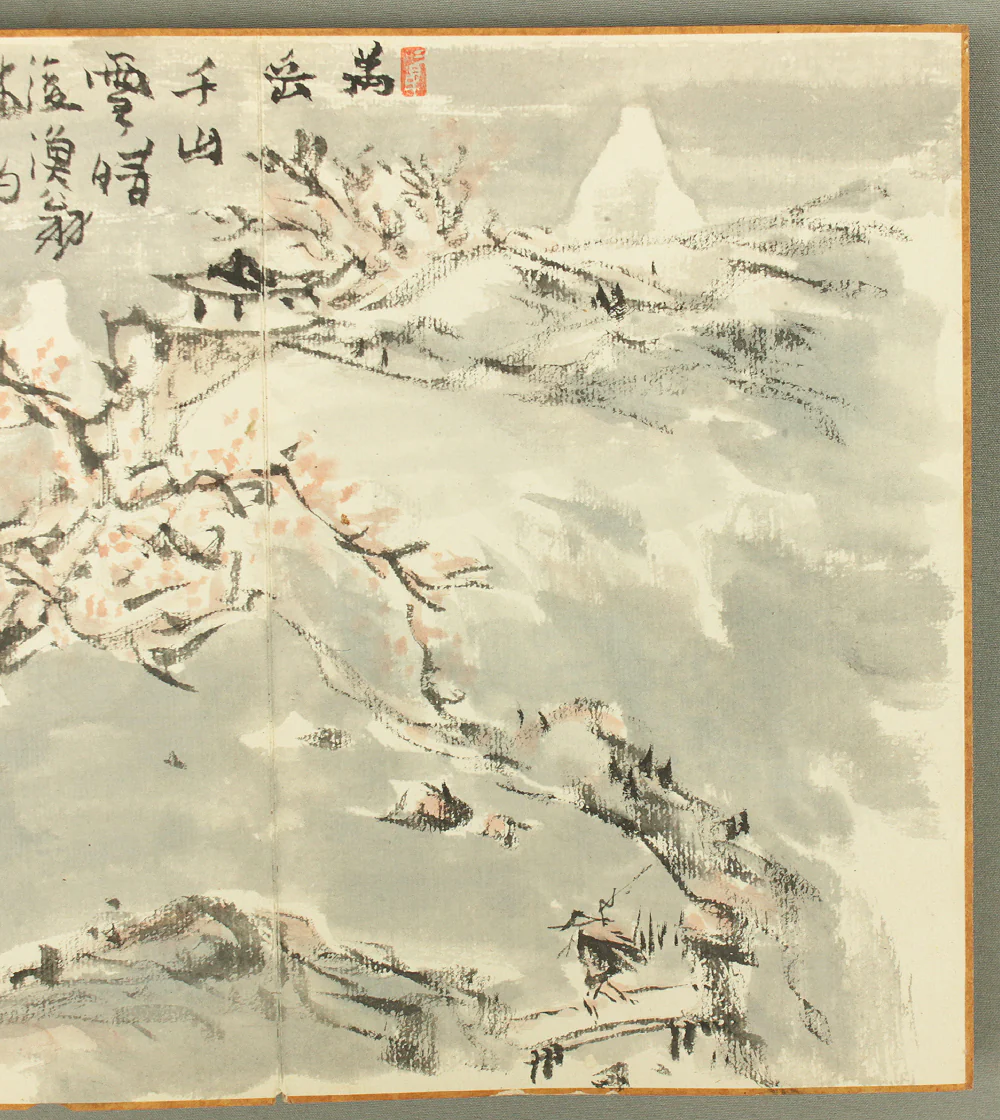 萬
岳
千山
雪晴
後漁翁